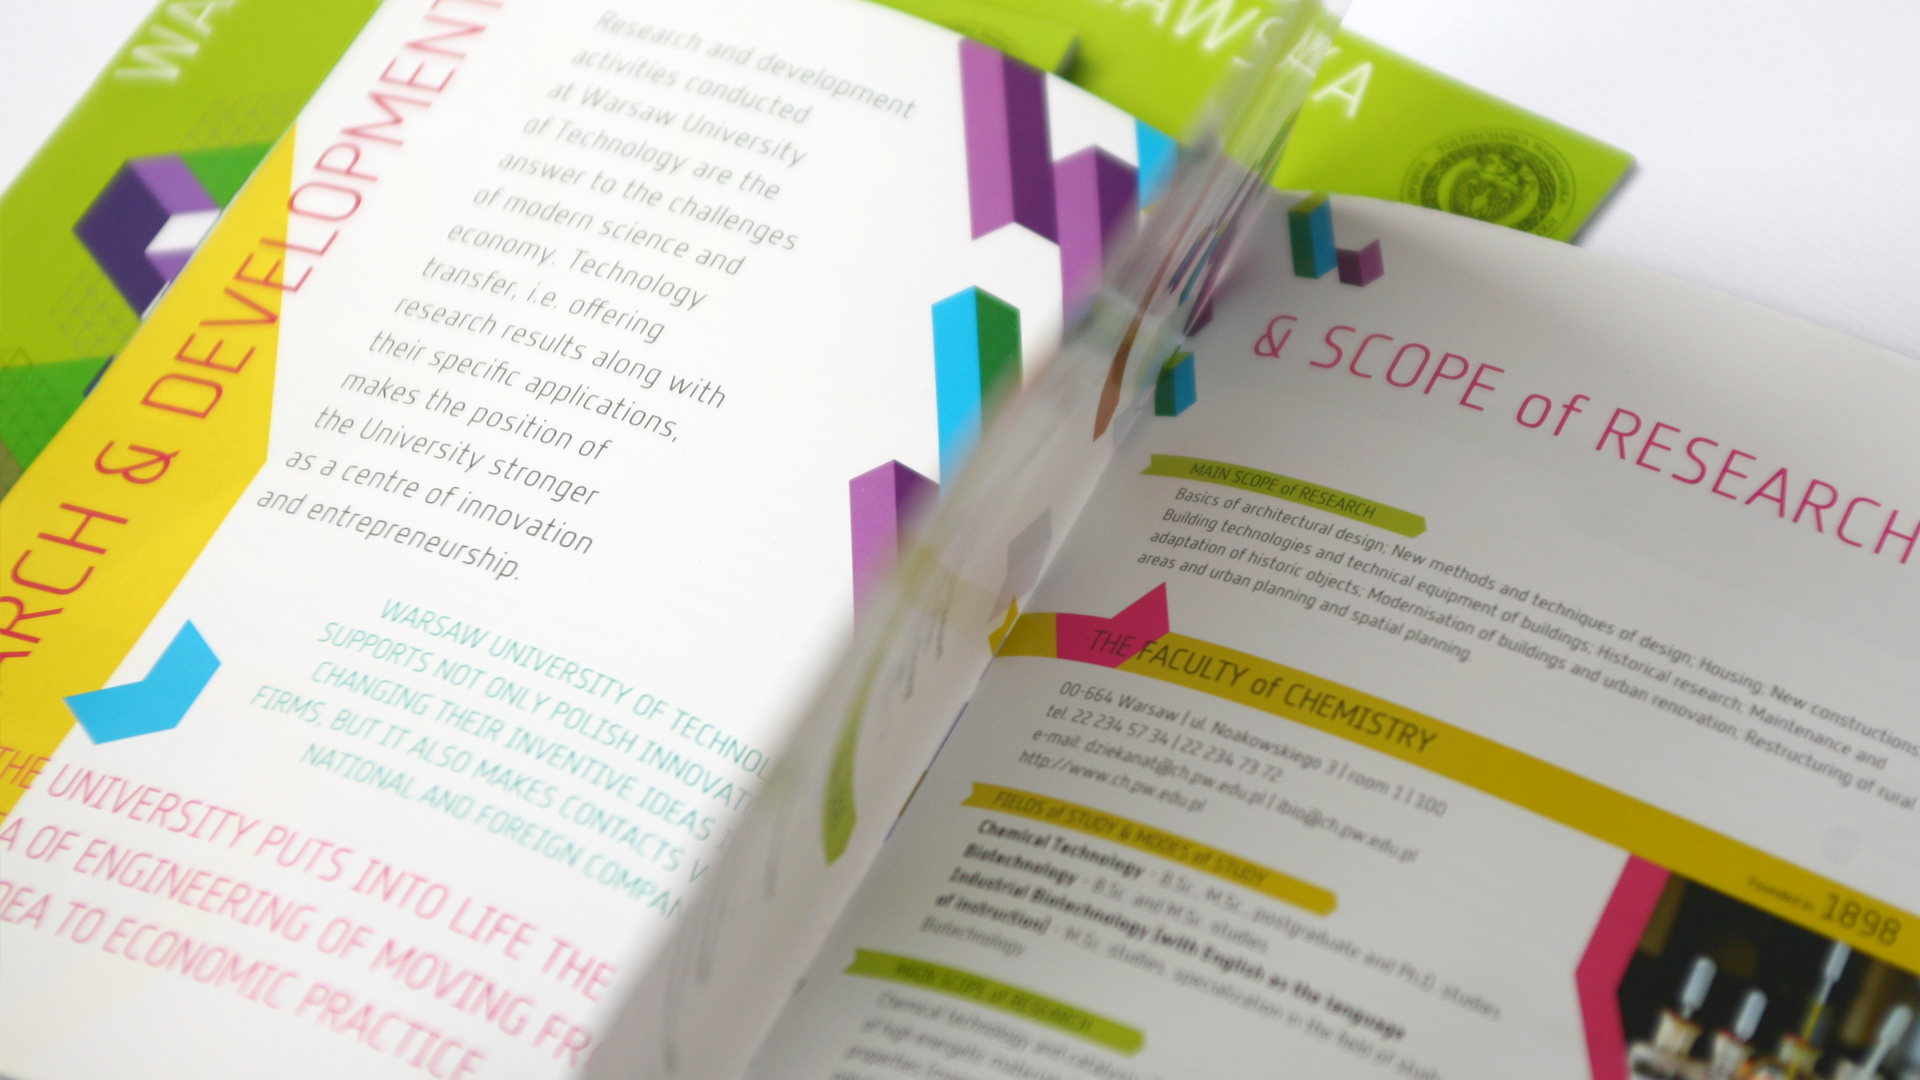 WA
AWSKA
POLITECHNIKA WARSZAWSKA
ARCH & DEVELOPMENT
Research and development
activities conducted
at Warsaw University
of Technology are the
answer to the challenges
of modern science and
economy. Technology
transfer, i.e. offering
research results along with
their specific applications,
makes the position of
the University stronger
as a centre of innovation
and entrepreneurship.
WARSAW UNIVERSITY OF TECHNOL
SUPPORTS NOT ONLY POLISH INNOVAT
CHANGING THEIR INVENTIVE IDEAS
FIRMS, BUT IT ALSO MAKES CONTACTS
NATIONAL AND FOREIGN COMPAN
THE UNIVERSITY PUTS INTO LIFE THE
A OF ENGINEERING OF MOVING FR
DEA TO ECONOMIC PRACTICE
& SCOPE of RESEARCH
MAIN SCOPE of RESEARCH
Basics of architectural design; New methods and techniques of design; Housing; New constructions
Building technologies and technical equipment of buildings; Historical research; Maintenance and
adaptation of historic objects; Modernisation of buildings and urban renovation; Restructuring of rural
areas and urban planning and spatial planning.
THE FACULTY of CHEMISTRY
00-664 Warsaw | ul. Noakowskiego 3 | room 1 | 100
tel. 22 234 57 34 | 22 234 73 72
e-mail: dziekanat@ch.pw.edu.pl | ibio@ch.pw.edu.pl
http://www.ch.pw.edu.pl
Founded in 1898
FIELDS of STUDY & MODES of STUDY
Chemical Technology - B.Sc., M.Sc., postgraduate and Ph.D. studies
Biotechnology - B.Sc. and M.Sc. studies
Industrial Biotechnology (with English as the language
of instruction) - M.Sc. studies, specialization in the field of study
Biotechnology
MAIN SCOPE of RESEARCH
Chemical technology and catalysis
of high energetic materials
properties